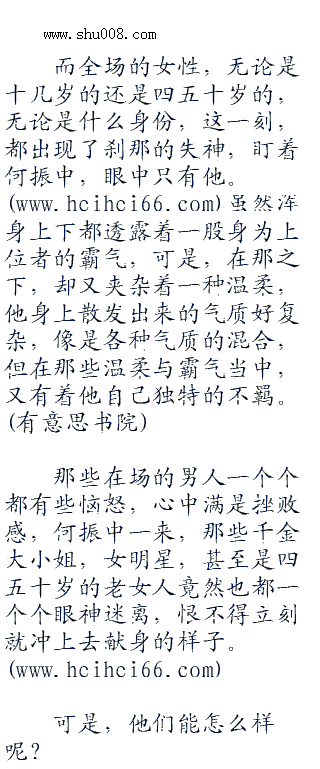 www.shu008.com
而全场的女性，无论是
十几岁的还是四五十岁的，
无论是什么身份，这一刻，
都出现了刹那的失神，盯着
何振中，眼中只有他。
(www.hcihci66.com)虽然浑
身上下都透露着一股身为上
位者的霸气，可是，在那之
下，却又夹杂着一种温柔，
他身上散发出来的气质好复
杂，像是各种气质的混合，
但在那些温柔与霸气当中，
又有着他自己独特的不羁。
(有意思书院)
那些在场的男人一个个
都有些恼怒，心中满是挫败
感，何振中一来，那些千金
大小姐，女明星，甚至是四
五十岁的老女人竟然也都一
个个眼神迷离，恨不得立刻
就冲上去献身的样子。
(www.hcihci66.com)
可是，他们能怎么样
呢？